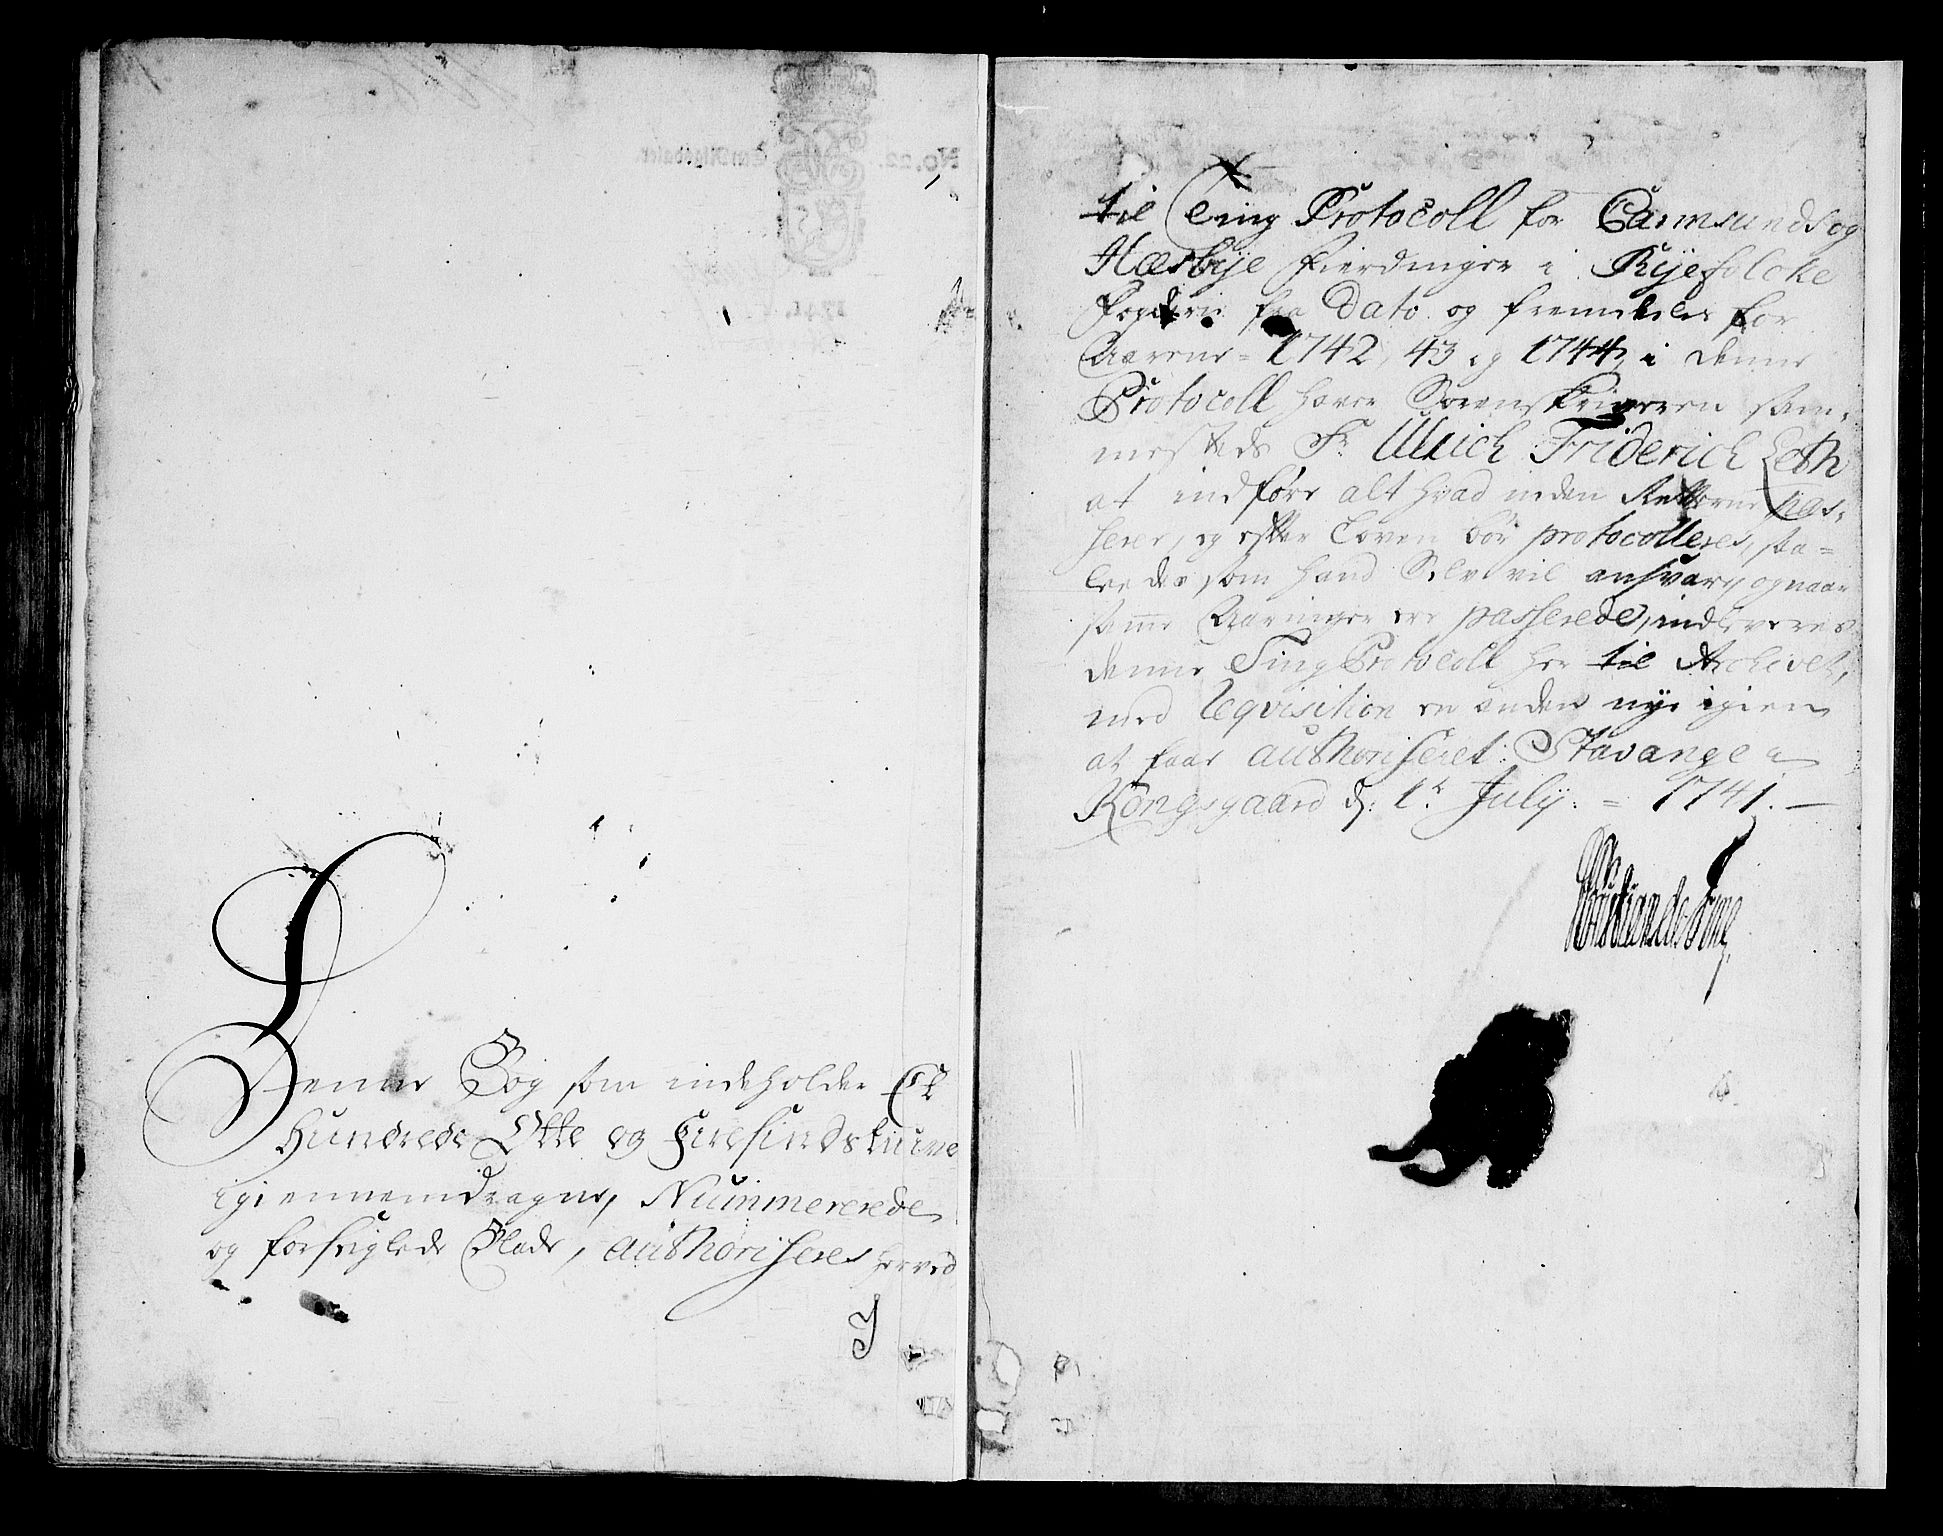 Denne Bog som indeholder Et
Hundrede Otte og Firesindstiuve
igiennemdragne, Nummererede
og forseiglede Blade, authoriseres herved
I
til Ting Protocoll for Carmsunds og
Hæsbye Fierdinger i Ryefolcke
Fogderie fra Dato og fremdeles for
Aarene = 1742, 43 og 1744, i denne
Protocoll haver Sorenskriveren sam-
mesteds Sr. Ulrich Friderich Leth
at indføre alt hvad inden Retterne pas-
serer, og efter Loven bør protocolleres, saa=
ledes som hand Selv vil ansvare, og naar
samme Aaringer ere passerede, indleveres
denne Ting Protocoll her til Archivet,
med Reqvisition en anden nye igien
at faae authoriseret. Stavanger
Kongsgaard d: 1t July: = 1741. —